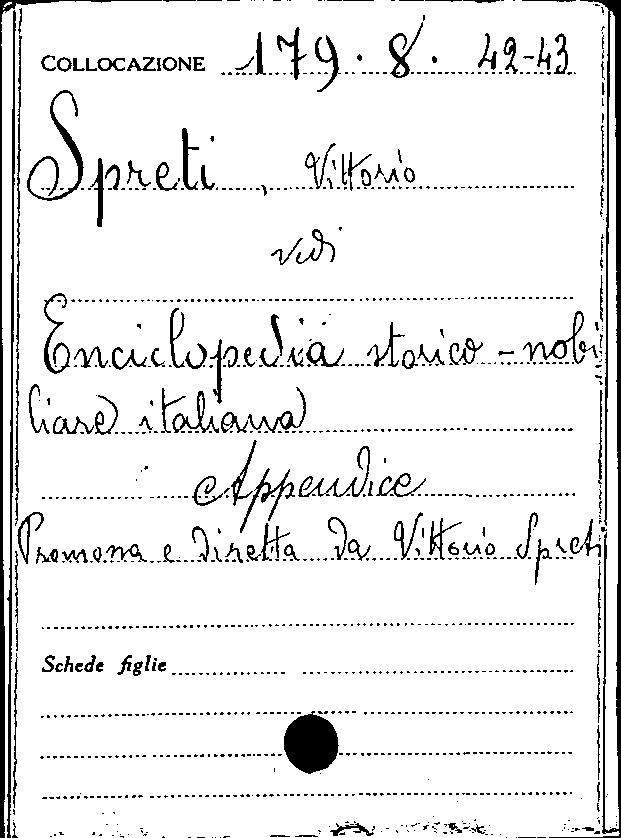 COLLOCAZIONE 179. 8. 42-43
Spreti, Vittorio
vedi
Enciclopedia storico-nobi
liare italiana
Appendice
Promona e diretta da Vittorio Spreti
Schede figlie